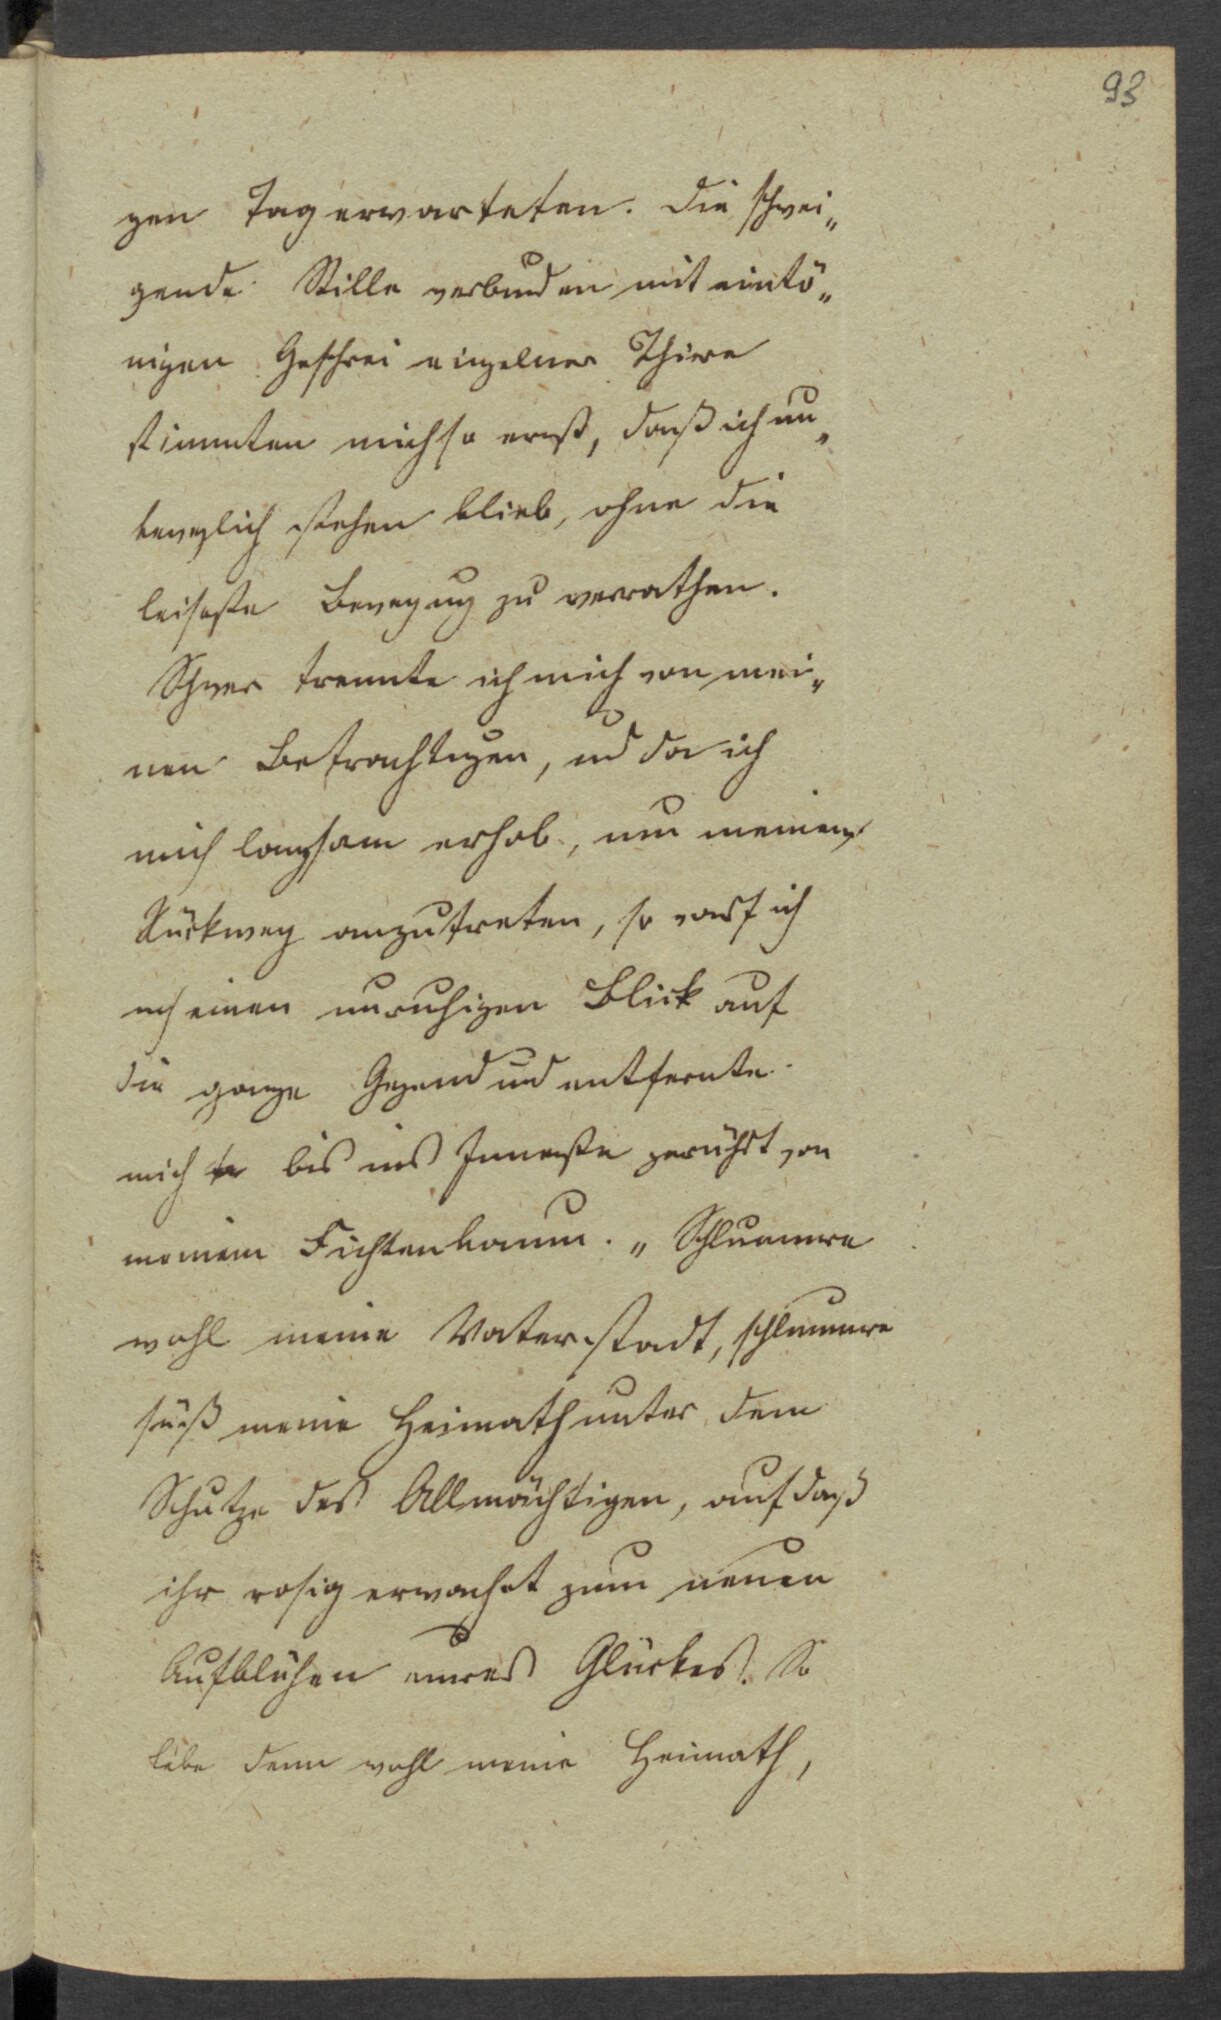 93
gen Tag erwarteten. Die schwei„
gende Stille verbunden mit eintö„
nigen Geschrei einzelner Thiere
stimmten mich so ernst, daß ich un„
beweglich stehen blieb, ohne die
leiseste Bewegung zu verrathen.
Schwer trennte ich mich von mei„
nen Betrachtungen, und da ich
mich langsam erhob, um meinen
Rückweg anzutreten, so warf ich
noch einen unruhigen Blick auf
die ganze Gegend und entfernte
mich bis ins Innerste gerührt von
meinem Fichtenbaum. „Schlummre
wohl meine Vaterstadt, schlummre
süß meine Heimath unter dem
Schutze des Allmächtigen, auf daß
ihr rosig erwachet zum neuen
Aufblühen eures Glückes. So
lebe denn wohl meine Heimath,